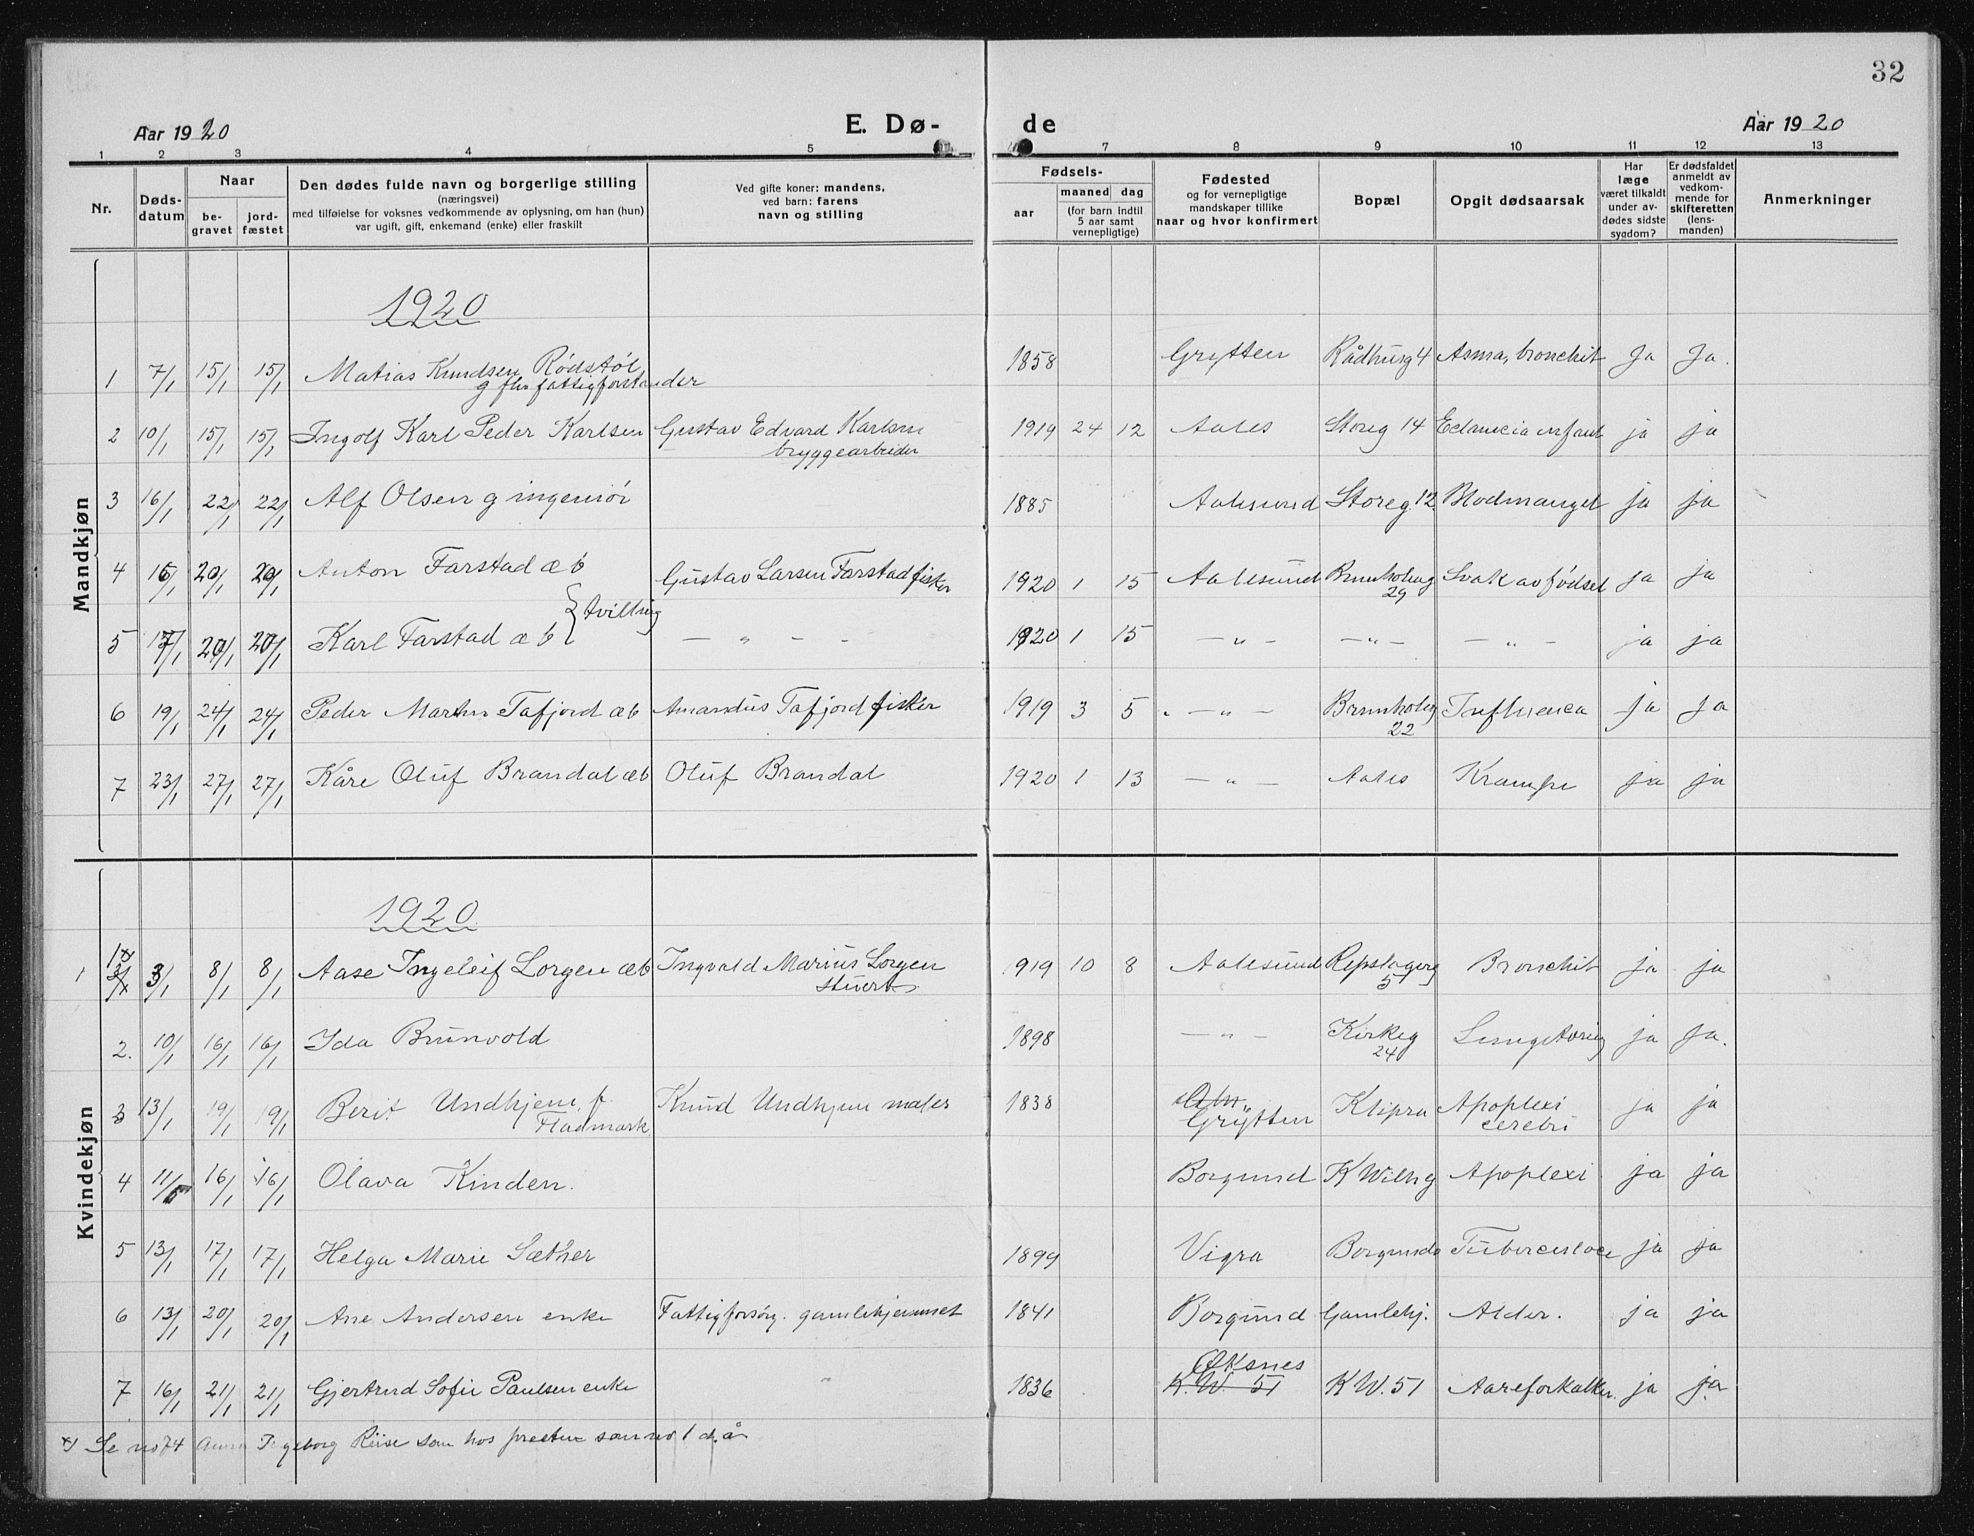 32
Aar 1920 E. Dø- de Aar 1920
1 2 3 4 5 7 8 9 10 11 12 13
Nr.
Døds-
datum
Naar
be-
gravet
jord-
fæstet
Den dødes fulde navn og borgerlige stilling
(næringsvei)
med tilføielse for voksnes vedkommende av oplysning, om han (hun)
var ugift, gift, enkemand (enke) eller fraskilt
Ved gifte koner: mandens,
ved barn: farens
navn og stilling
Fødsels-
aar
maaned dag
(for barn indtil
5 aar samt
vernepligtige)
Fødested
og for vernepligtige
mandskaper tillike
naar og hvor konfirmert
Bopæl
Opgit dødsaarsak
Har
læge
været tilkaldt
under av-
dødes sidste
sygdom?
Er dødsfaldet
anmeldt av
vedkom-
mende for
skifteretten
(lens-
manden)
Anmerkninger
Mandkjøn
1920
1 7/1 15/1 15/1 Matias Knudsen Rødstøl 1858 Grytten Rådhusg 4 Asma, bronchit Ja Ja.
g fhv fattigforstander
2 10/1 15/1 15/1 Ingolf Karl Peder Karlsen Gustav Edvard Karlsen 1919 24 12 Aales Storeg 14 Eclamcia infant ja ja
bryggearbeider
3 16/1 22/1 22/1 Alf Olsen g ingeniør 1885 Aalesund Storeg. 12 Blodmangel ja ja
4 16/1 20/1 20/1 Anton Farstad æ b Gustav Larsen Farstad fisker 1920 1 15 Aalesund Brunholmg Svak av fødsel ja ja
29
{tvilling
5 17/1 20/1 20/1 Karl Farstad æ b — " — - 1920 1 15 — " — — " — — " — ja ja
6 19/1 24/1 24/1 Peder Martin Tafjord æb Amandus Tafjord fisker 1919 3 5 " — " — Brunholmg Influenca ja ja
22
7 23/1 27/1 27/1 Kåre Oluf Brandal æb Oluf Brandal 1920 1 13 — " — Aales Krampe ja ja
Kvindekjøn
1920
1 3/1 8/1 8/1 Aase Ingeleif Lorgen æb Ingvald Marius Lorgen 1919 10 8 Aalesund Repslagerg Bronchit ja ja
stuert 5
2. 10/1 16/1 16/1 Ida Brunvold 1898 — " — Kirkeg Lungetæring ja ja.
24
3 13/1 19/1 19/1 Berit Undhjem, f. Knud Undhjem maler 1838 Grytten Klipra Apoplexi ja ja
Fladmark cerebri
4 11/1 16/1 16/1 Olava Kinden. Borgund K Wilhg Apoplexi ja ja
5 13/1 17/1 17/1 Helga Marie Sæther 1899 Vigra Borgund Tuberculose ja ja
6 13/1 20/1 20/1 Ane Andersen enke Fattigforsørg. gamlehjemmet 1841 Borgund Gamlehj. Alder. ja ja
7 16/1 21/1 21/1 Gjertrud Sofie Paulsen enke " 1836 Øksnes K W. 51 Aareforkalkn. ja ja
K. W. 51
x) Se no 74 Anna Ingeborg Riise som hos presten som no 1 d. å